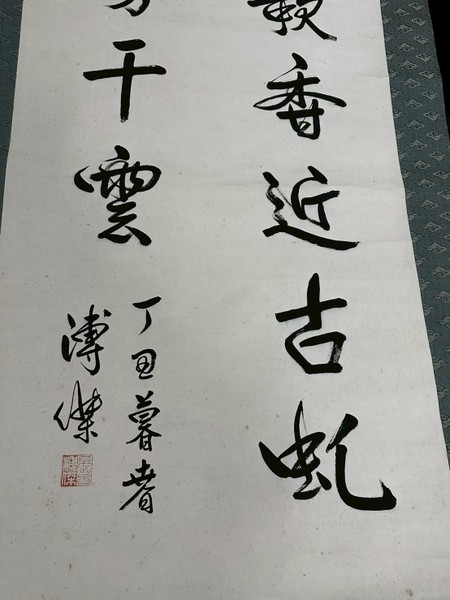 香近古虬
干雲
丁丑暮春
溥傑